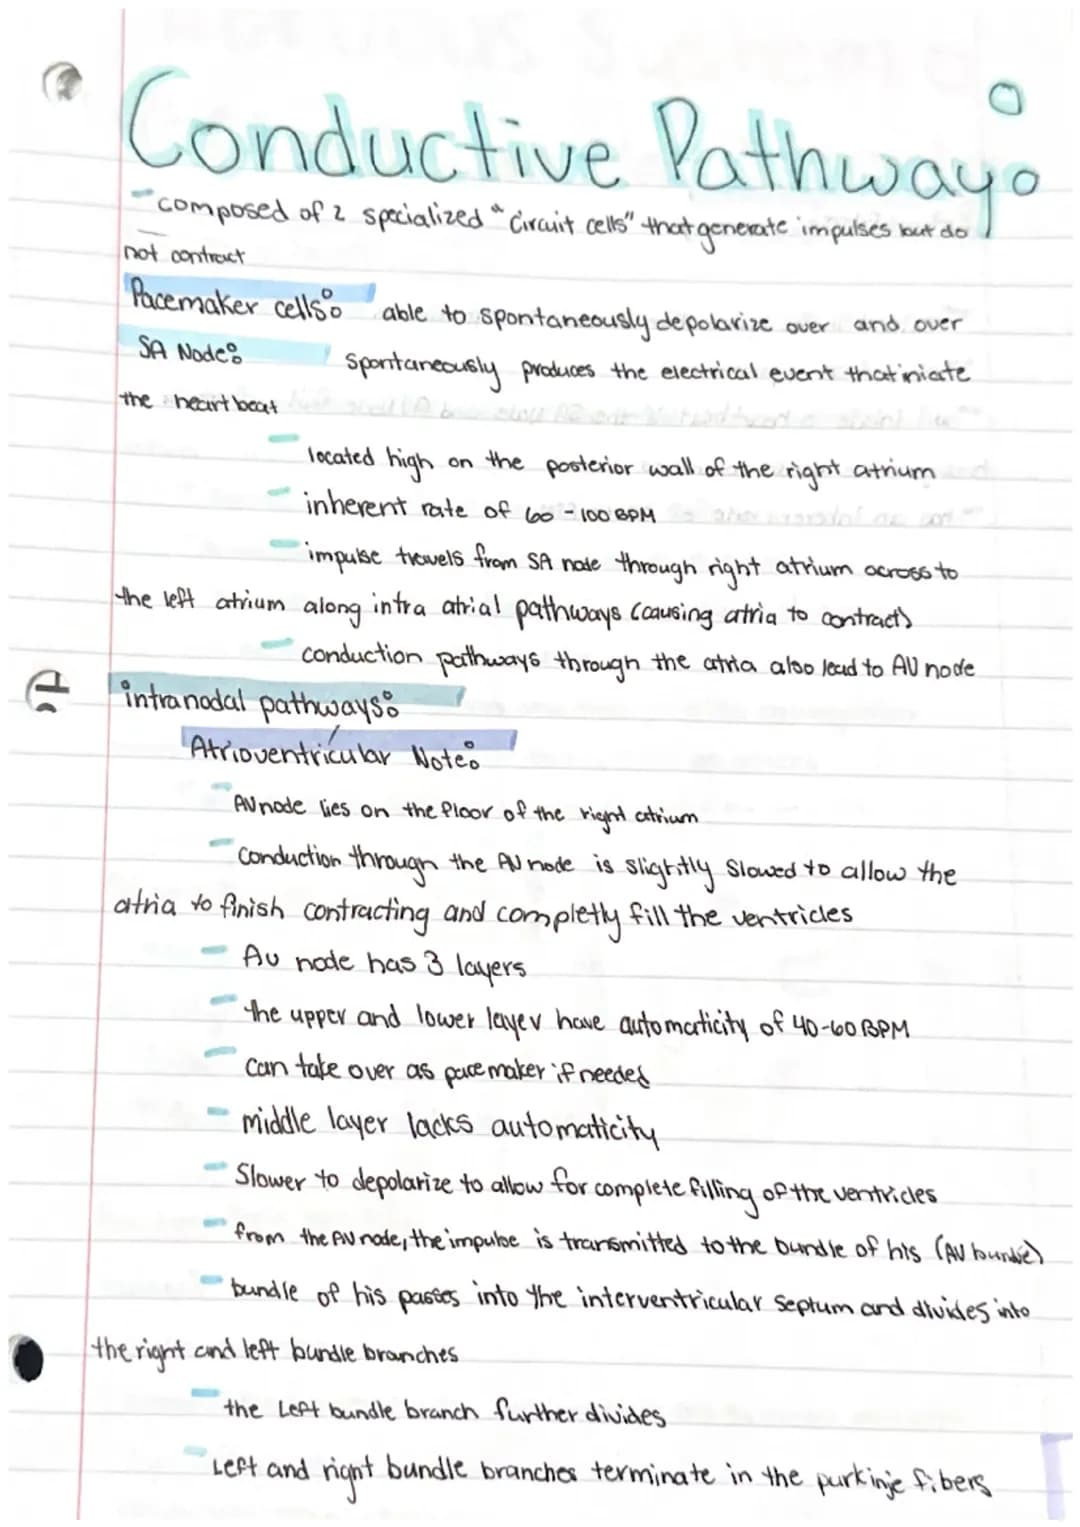 Conductive Pathway:
- composed of 2 specialized "circuit cells" that generate impulses but do
not contract
Pacemaker cells: able to spontaneously depolarize over and over
SA Node: spontaneously produces the electrical event that iniate
the heart beat
- located high on the posterior wall of the right atrium
- inherent rate of 60-100 BPM
- impulse travels from SA node through right atrium across to
the left atrium along intra atrial pathways (causing atria to contract)
- conduction pathways through the atria also lead to AV node
intranodal pathways:
Atrioventricular Note:
- AV node lies on the floor of the right atrium
- conduction through the AV node is slightly slowed to allow the
atria to finish contracting and completly fill the ventricles
- AV node has 3 layers
- the upper and lower layer have automaticity of 40-60 BPM
- can take over as pacemaker if needed
- middle layer lacks automaticity
- Slower to depolarize to allow for complete filling of the ventricles
- from the AV node, the impulse is transmitted to the bundle of his (AV bundle)
- bundle of his passes into the interventricular septum and divides into
the right and left bundle branches
- the Left bundle branch further divides
- Left and right bundle branches terminate in the purkinje fibers